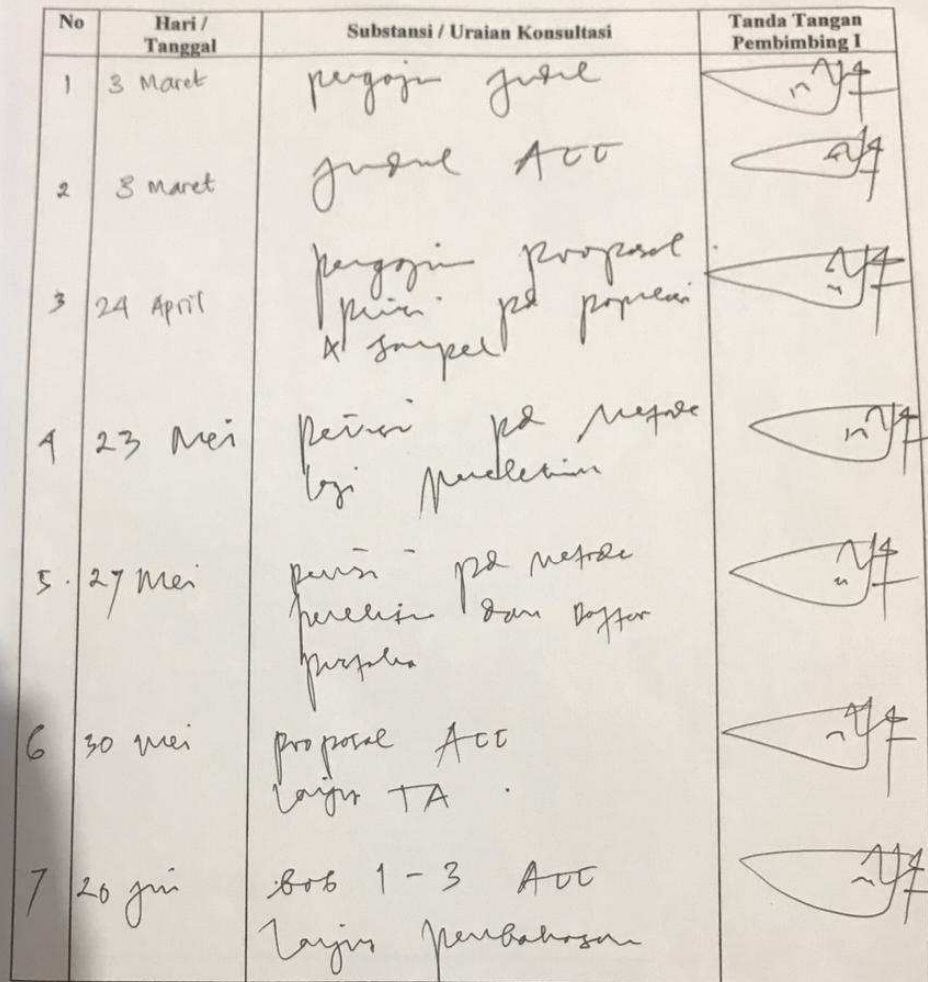 No Hari / Tanggal Substansi / Uraian Konsultasi Tanda Tangan Pembimbing I
1 3 Maret judul
2 3 Maret judul ACC
3 24 April proposal
pd populasi
& sampel
4 23 Mei revisi pd metodo
logi penelitian
5. 27 Mei revisi pd metode
penelitian dan Daftar
pustaka
6 30 Mei proposal ACC
lanjut TA.
7 20 juni bab 1-3 ACC
lanjut pembahasan